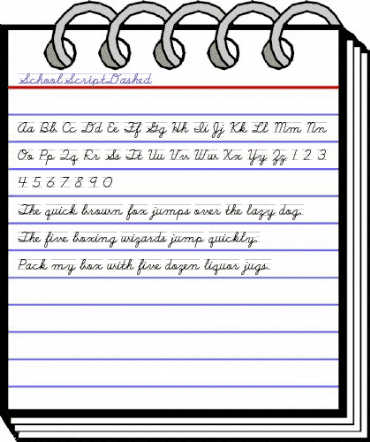 SchoolScriptDashed
Aa Bb Cc Dd Ee Ff Gg Hh Ii Jj Kk Ll Mm Nn
Oo Pp Qq Rr Ss Tt Uu Vv Ww Xx Yy Zz 1 2 3
4 5 6 7 8 9 0
The quick brown fox jumps over the lazy dog.
The five boxing wizards jump quickly.
Pack my box with five dozen liquor jugs.